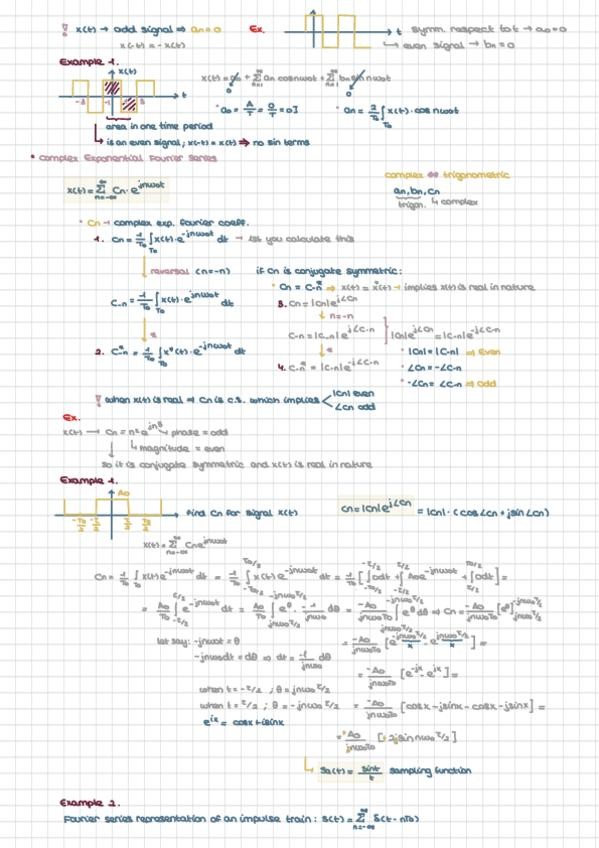 ! x(t) → odd signal ⇒ an=0
x(t) = -x(t)
Ex.
t symm. respect to t → a0=0
↳ even signal → bn=0
Example 1.
x(t)
-3 -1 1 3 t
x(t) = a0 + Σ an cosnω0t + Σ bn sin nω0t
0 0
• a0 = A/T = 0/T = 0]
• an = 2/T0 ∫T0 x(t)·cos nω0t
area in one time period
↳ is an even signal; x(-t) = x(t) ⇒ no sin terms
• Complex Exponential Fourier Series
complex ⇔ trigonometric
x(t) = Σ n=-∞ ∞ Cn· e^jnω0t
an, bn, cn
trigon. ↳ complex
• Cn → complex exp. fourier coeff.
1. Cn = 1/T0 ∫T0 x(t)·e^-jnω0t dt → let you calculate this
reversal (n=-n)
if Cn is conjugate symmetric:
• Cn = C-n* ⇒ x(t) = x*(t) → implies x(t) is real in nature
C-n = 1/T0 ∫T0 x(t)·e^jnω0t dt
3. Cn = |Cn|e^j∠Cn
↓ n=-n
C-n = |C-n|e^j∠C-n
|Cn|e^j∠Cn = |C-n|e^-j∠C-n
↓ *
2. C-n* = 1/T0 ∫T0 x*(t)·e^-jnω0t dt
4. C-n* = |C-n|e^-j∠C-n
• |Cn| = |C-n| ⇒ Even
• ∠Cn = -∠C-n
• -∠Cn = ∠C-n ⇒ Odd
! when x(t) is real ⇒ Cn is c.s. which implies < |Cn| even
∠Cn odd
Ex.
x(t) → Cn = n²e^jn³ ↳ phase = odd
↳ magnitude = even
so it is conjugate symmetric and x(t) is real in nature
Example 1.
A0
-T0/2 -τ/2 τ/2 T0/2
Find Cn for signal x(t)
Cn = |Cn|e^j∠Cn = |Cn|·(cos∠Cn + jsin∠Cn)
x(t) = Σ n=-∞ ∞ Cn e^jnω0t
Cn = 1/T0 ∫T0 x(t)e^-jnω0t dt = 1/T0 ∫-T0/2 T0/2 x(t)e^-jnω0t dt = 1/T0 [∫-T0/2 -τ/2 0dt + ∫-τ/2 τ/2 A0e^-jnω0t dt + ∫τ/2 T0/2 0dt] =
= A0/T0 ∫-τ/2 τ/2 e^-jnω0t dt = A0/T0 ∫ e^θ · -1/jnω0 dθ = -A0/jnω0T0 ∫ e^θ dθ ⇒ Cn = -A0/jnω0T0 [e^θ] jnω0τ/2 -jnω0τ/2
let say: -jnω0t = θ
= -A0/jnω0T0 [e^-jnω0τ/2 - e^jnω0τ/2] =
x x
-jnω0dt = dθ ⇒ dt = -1/jnω0 dθ
= -A0/jnω0T0 [e^-jx - e^jx] =
when t = -τ/2 ; θ = jnω0 τ/2
when t = τ/2 ; θ = -jnω0 τ/2
= -A0/jnω0T0 [cosx - jsinx - cosx - jsinx] =
e^ix = cosx + isinx
= -A0/jnω0T0 [-2jsin nω0 τ/2]
↳ Sa(t) = sint/t sampling function
Example 2.
Fourier series representation of an impulse train: S(t) = Σ n=-∞ ∞ δ(t - nT0)